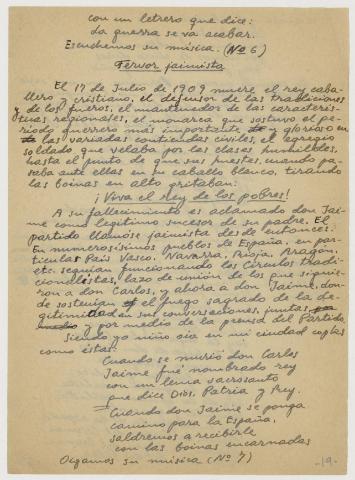 con un letrero que dice:
La guerra se va acabar.
Escuchemos su música. (Nº 6)
Fervor jaimista
El 17 de Julio de 1909 muere el rey caba-
llero y cristiano, el defensor de las tradiciones
y de los fueros, el mantenedor de las caracterís-
ticas regionales, el monarca que sostuvo el pe-
riodo guerrero más importante y glorioso en
las variadas contiendas civiles, el egregio
soldado que velaba por las clases humildes,
hasta el punto de que sus huestes, cuando pa-
saba ante ellas en su caballo blanco, tirando
las boinas en alto gritaban:
¡Viva el rey de los pobres!
A su fallecimiento es aclamado don Jai-
me como legítimo sucesor de su padre. El
partido llamóse jaimista desde entonces.
En numerosísimos pueblos de España, en par-
ticular País Vasco, Navarra, Rioja, Aragón,
etc. seguían funcionando los Círculos tradi-
cionalistas, lazo de unión de los que siguie-
ron a don Carlos, y ahora a don Jaime, don-
de sostenían el fuego sagrado de la le-
gitimidad en sus conversaciones, juntas
y por medio de la prensa del Partido.
Siendo yo niño oía en mi ciudad coplas
como éstas:
Cuando se murió don Carlos
Jaime fué nombrado rey
con un lema sacrosanto
que dice Dios, Patria y Rey.
Cuando don Jaime se ponga
camino para la España,
saldremos a recibirle
con las boinas encarnadas
Oigamos su música (Nº 7)
-19-